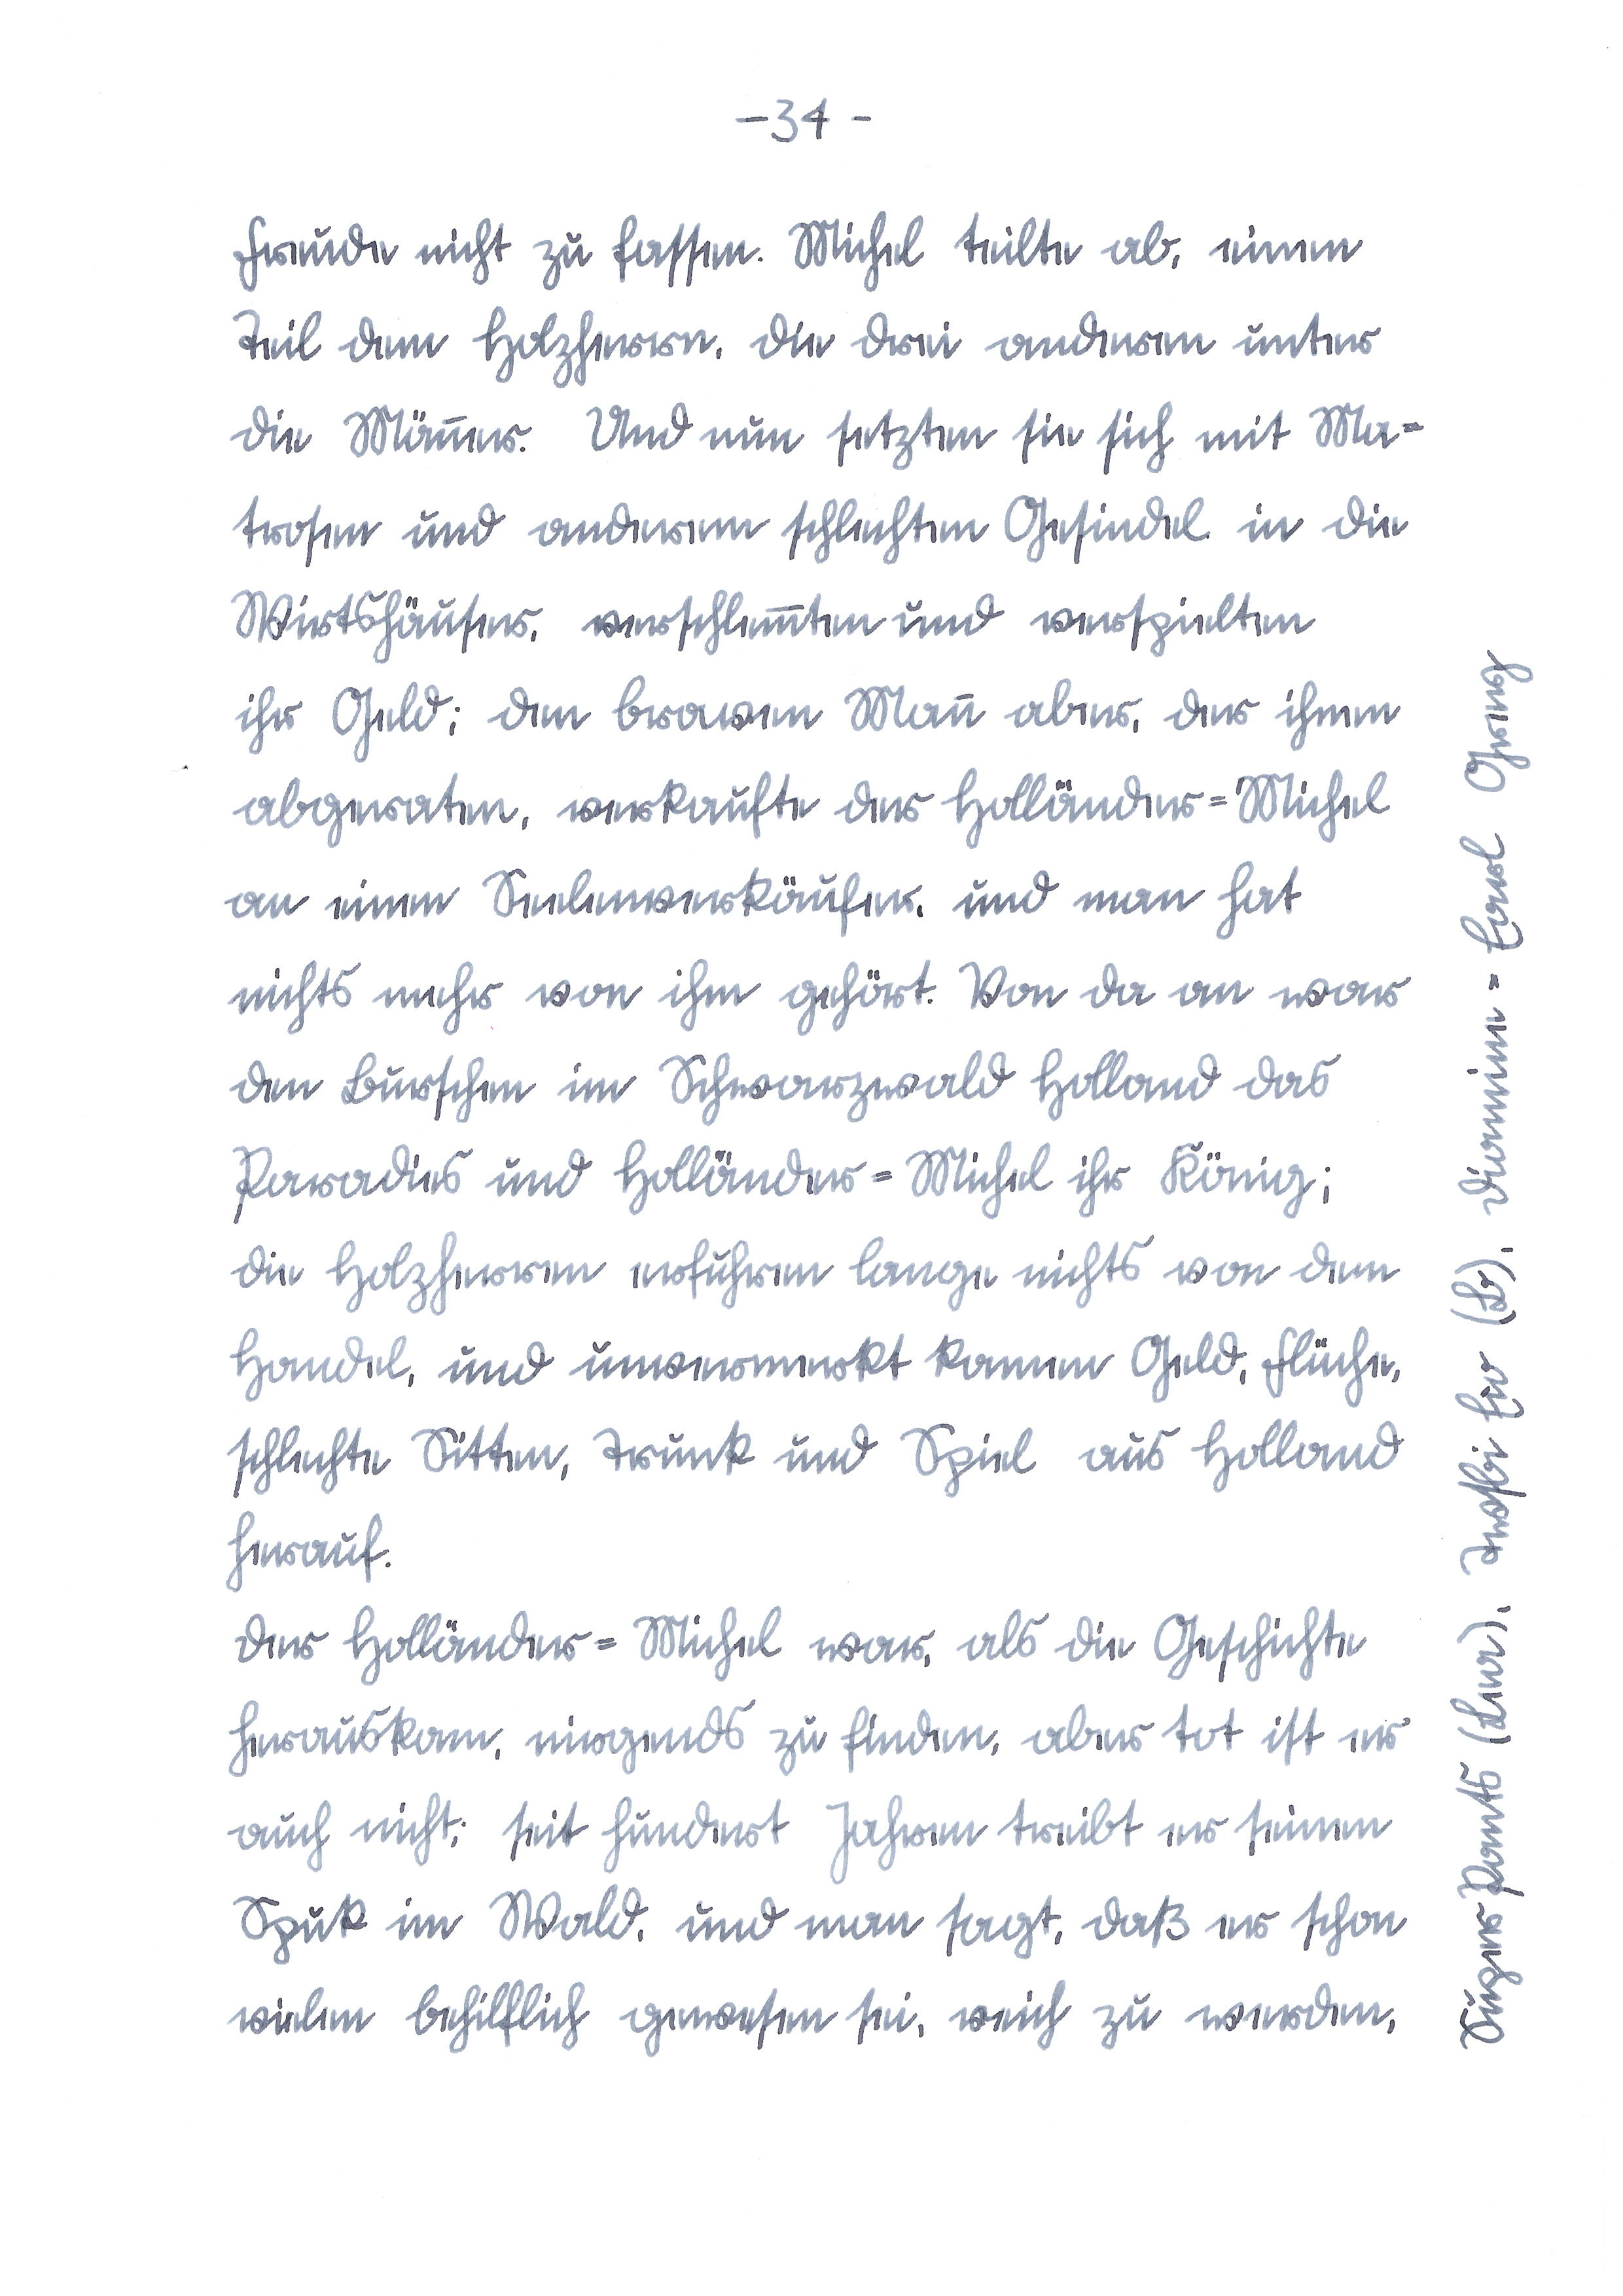 -34-
Freude nicht zu fassen. Michel teilte ab, einen
Teil dem Holzherrn, die drei anderen unter
die Mäñer. Und nun setzten sie sich mit Ma=
trosen und anderem schlechten Gesindel in die
Wirtshäuser, verschlem̄ten und verspielten
ihr Geld; den braven Mañ aber, der ihnen
abgeraten, verkaufte der Holländer=Michel
an einen Seelenverkäufer, und man hat
nichts mehr von ihm gehört. Von da an war
den Burschen im Schwarzwald Holland das
Paradies und Holländer=Michel ihr König;
die Holzherren erfuhren lange nichts von dem
Handel, und unvermerkt kamen Geld, Flüche,
schlechte Sitten, Trunk und Spiel aus Holland
herauf.
Der Holländer=Michel war, als die Geschichte
herauskam, nirgends zu finden, aber tot ist er
auch nicht; seit hundert Jahren treibt er seinen
Spuk im Wald, und man sagt, daß er schon
vielen behilflich gewesen sei, reich zu werden,
(Br), Diamine = Earl Grey